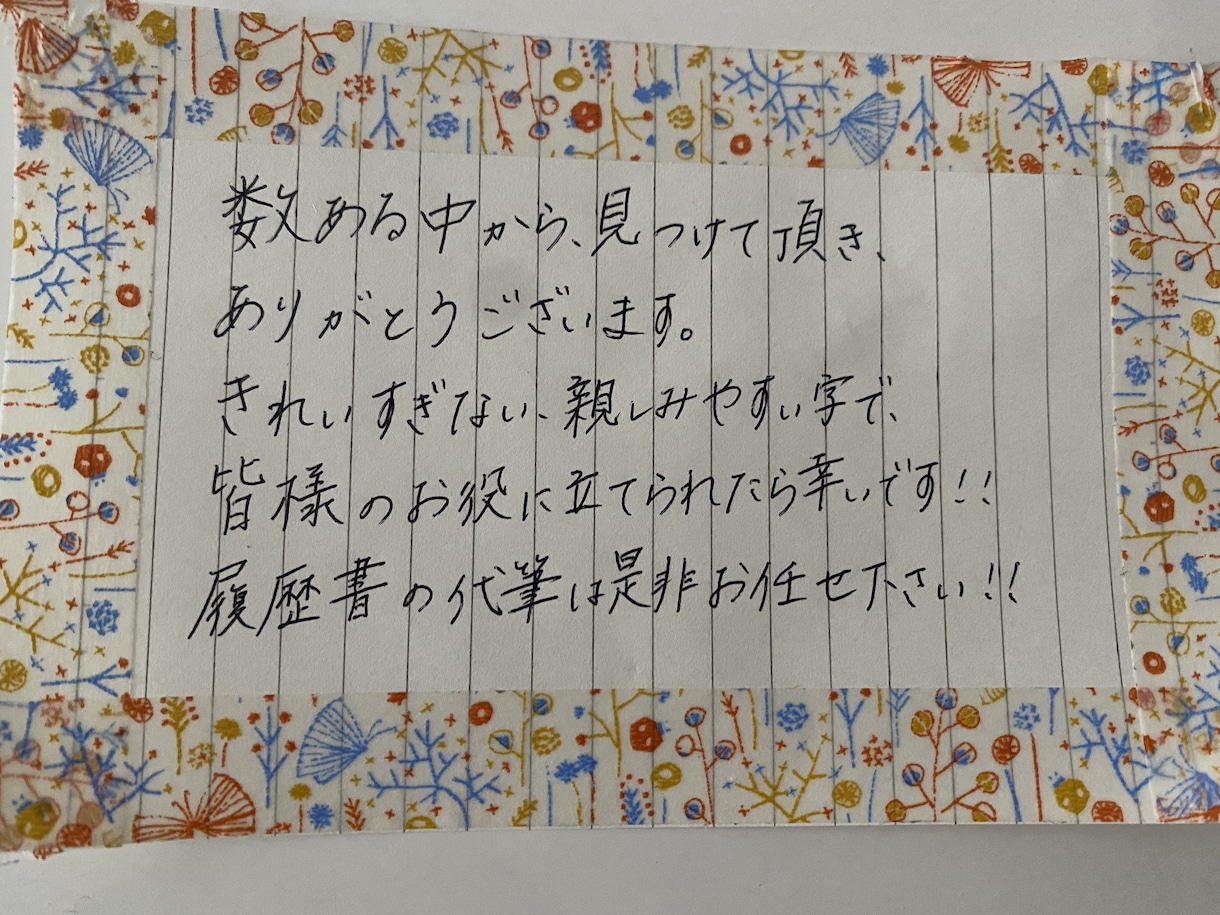 数ある中から、見つけて頂き、
ありがとうございます。
きれいすぎない、親しみやすい字で、
皆様のお役に立てられたら幸いです!!
履歴書の代筆は是非お任せ下さい!!